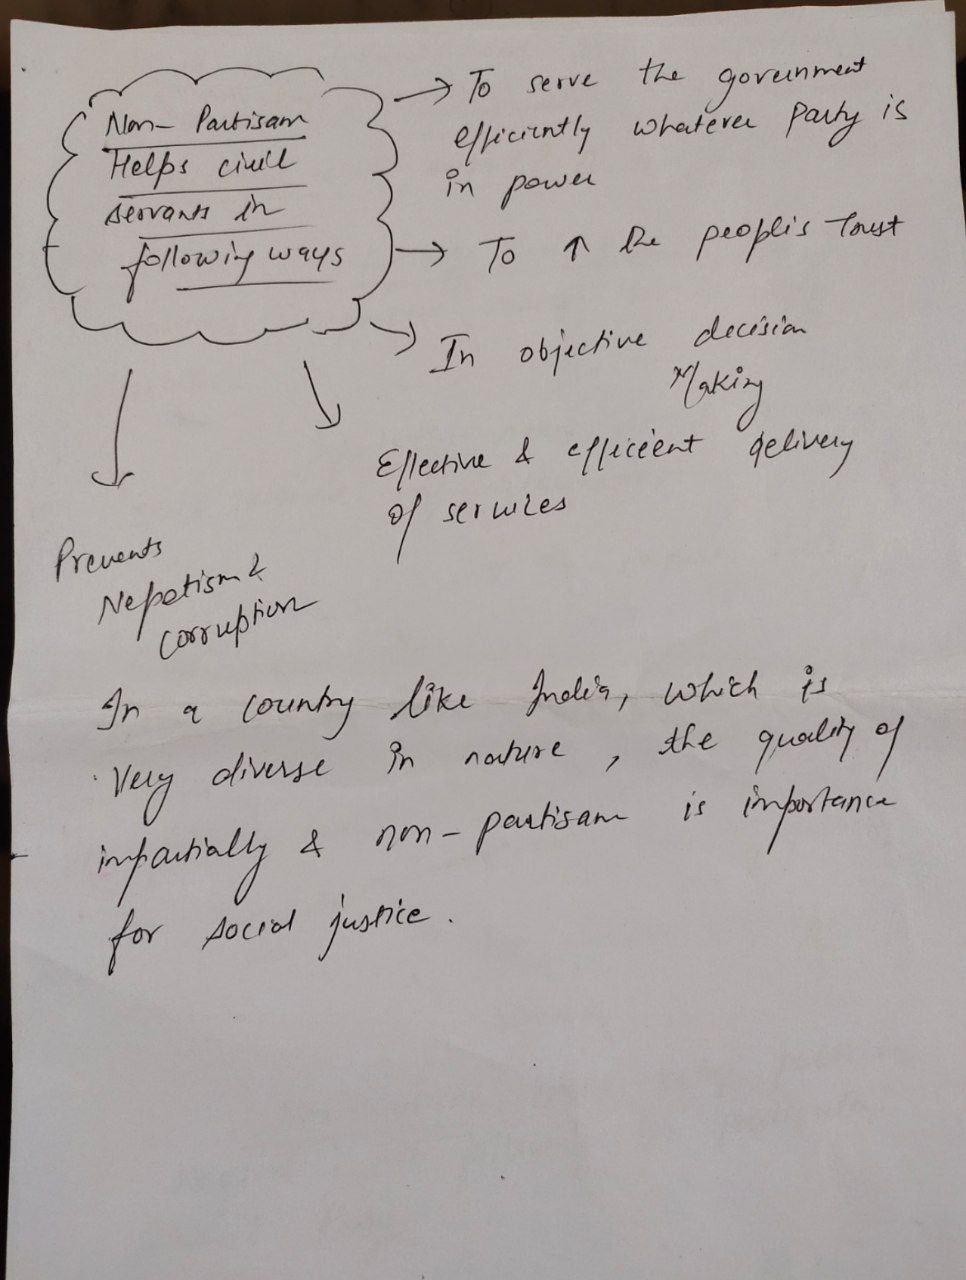 Non-Partisam
Helps civil
servants in
following ways
→ To serve the government
efficiently whatever Party is
in power
→ To ↑ the people's Trust
→ In objective decision
Making
Effective & efficient delivery
of services
Prevents
Nepotism &
corruption
In a country like India, which is
Very diverse in nature, the quality of
impartially & non-partisam is importance
for social justice.